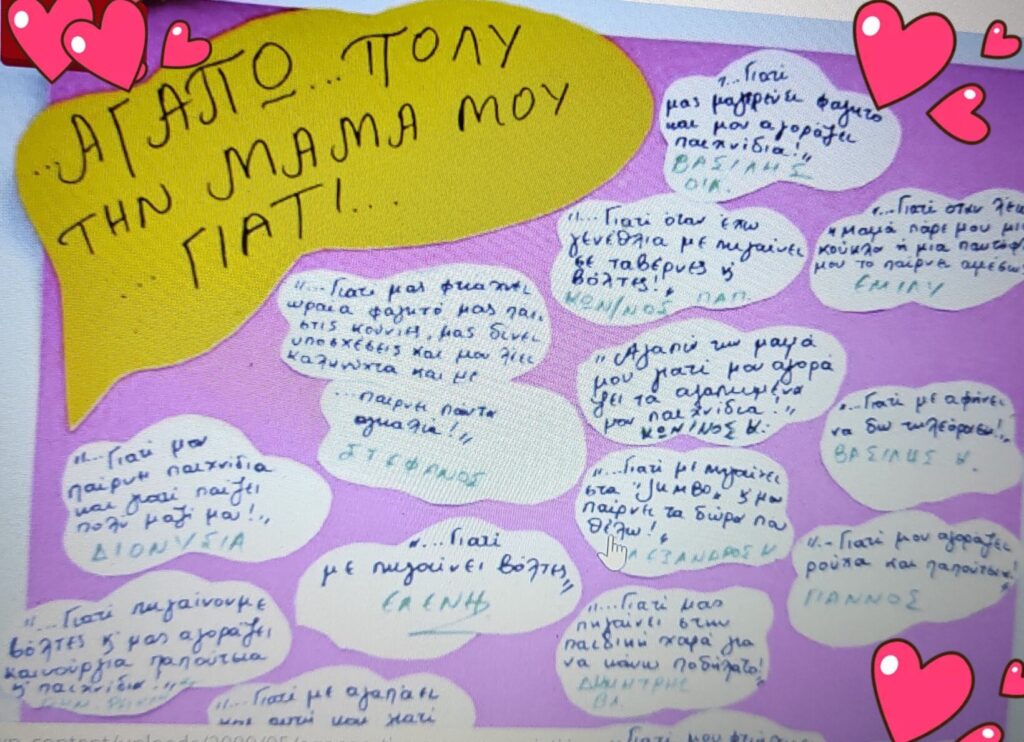 ...ΑΓΑΠΩ...ΠΟΛΥ
ΤΗΝ ΜΑΜΑ ΜΟΥ
...ΓΙΑΤΙ...
"...Γιατί
μας μαγειρεύει φαγητό
και μου αγοράζει
παιχνίδια!"
ΒΑΣΙΛΗΣ
ΟΙΚ.
"...Γιατί όταν έχω
γενέθλια με πηγαίνει
σε ταβέρνες κ'
βόλτες!"
ΚΩΝ/ΝΟΣ ΠΑΠ.
"...Γιατί όταν λέω
μαμά πάρε μου μια
κούκλα ή μια
μου το παίρνει αμέσως
ΕΜΙΛΥ
"...Γιατί μας φτιάχνει
ωραία φαγητό μας πάει
στις κούνιες, μας δίνει
υποσχέσεις και μου λέει
καληνύχτα και με
...παίρνει πάντα
αγκαλιά!"
ΣΤΕΦΑΝΟΣ
"Αγαπώ την μαμά
μου γιατί μου αγορά
ζει τα αγαπημένα
μου παιχνίδια!"
ΚΩΝ/ΝΟΣ Κ.
"...Γιατί με αφήνει
να δω τηλεόραση!"
ΒΑΣΙΛΗΣ Κ.
"...Γιατί μου
παίρνει παιχνίδια
και γιατί παίζει
πολύ μαζί μου!"
ΔΙΟΝΥΣΙΑ
"...Γιατί με πηγαίνει
στα "JUMBO" κ' μου
παίρνει τα δώρα που
θέλω!"
ΛΕΞΑΝΔΡΟΣ
"...Γιατί
με πηγαίνει βόλτες"
ΕΛΕΝΗ
"...Γιατί μου αγοράζει
ρούχα και παπούτσια!
ΓΙΑΝΝΟΣ
"...Γιατί πηγαίνουμε
βόλτες κ' μας αγοράζει
καινούργια παπούτσια
κ' παιχνίδια!"
"...Γιατί μας
πηγαίνει στην
παιδική χαρά για
να κάνω ποδήλατο!
ΔΗΜΗΤΡΗΣ
ΒΛ.
"...Γιατί με αγαπάει
και αυτή και γιατί
...Γιατί μου